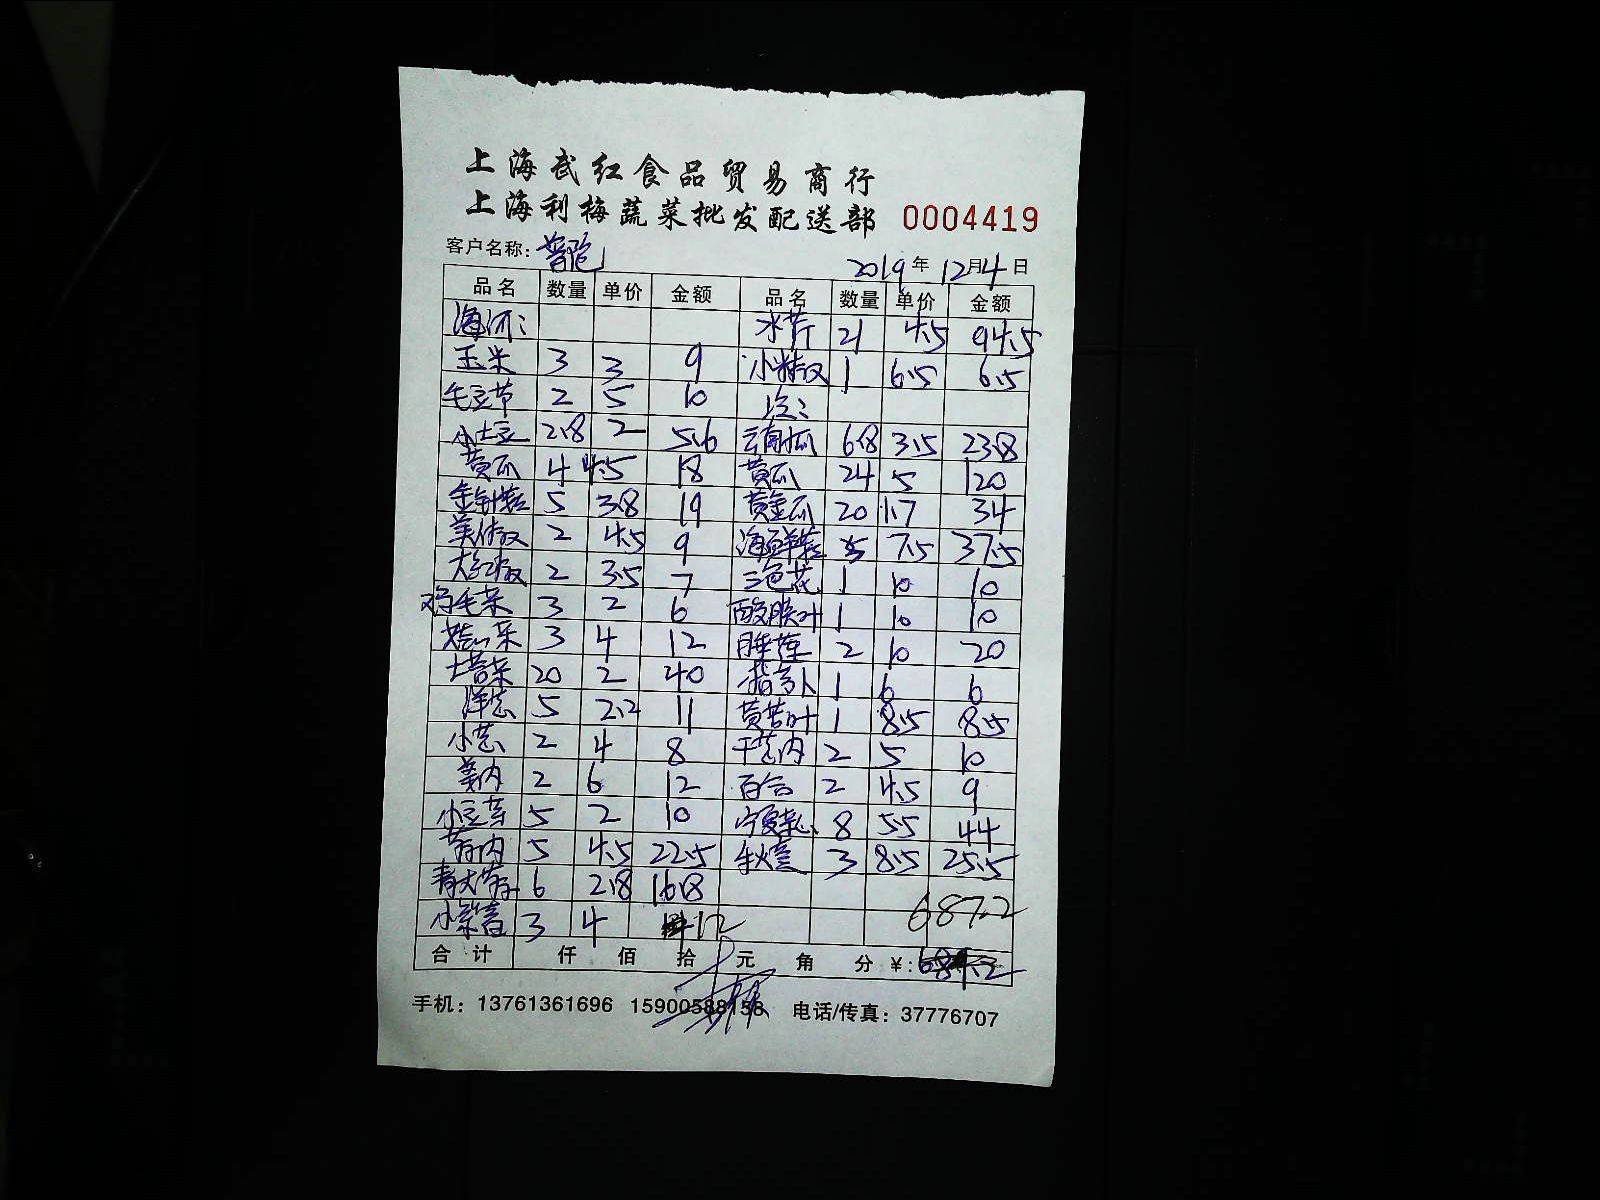 上海武红食品贸易商行
上海利梅蔬菜批发配送部 0004419
客户名称：普陀 2019年12月4日
品名 数量 单价 金额 品名 数量 单价 金额
水芹 21 4.5 94.5
玉米 3 3 9 小米椒 1 6.5 6.5
毛豆节 2 5 10
小土豆 2.8 2 5.6 云南瓜 6.8 3.5 23.8
黄瓜 4 4.5 18 黄瓜 24 5 120
金针菇 5 3.8 19 黄金瓜 20 1.7 34
美人椒 2 4.5 9 海鲜菇 5 7.5 37.5
大红椒 2 3.5 7 三色花 1 10 10
鸡毛菜 3 2 6 酸膜叶 1 10 10
3 4 12 睡莲 2 10 20
土苔菜 20 2 40 1 6 6
洋葱 5 2.2 11 黄苦叶 1 8.5 8.5
小葱 2 4 8 干葱肉 2 5 10
姜肉 2 6 12 百合 2 4.5 9
小豆芽 5 2 10 宁夏菜心 8 5.5 44
5 4.5 22.5 秋葵 3 8.5 25.5
青大蒜 6 2.8 16.8
3 4 12 687.2
合计 仟 佰 拾 元 角 分 ¥:
手机：13761361696 15900588158 电话/传真：37776707